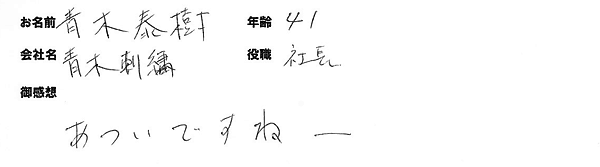 お名前 青木泰樹 年齢 41
会社名 青木刺繍 役職 社長
御感想
あついですねー